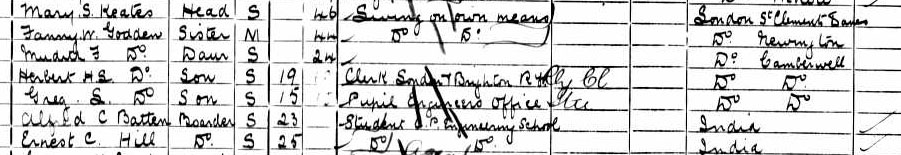 Mary S. Keates Head S 46 Living on own means London St Clement Danes
Fanny W. Godden Sister M 44 Do Do Do Newington
F Do Daur S 24 Do Camberwell
Herbert H S Do Son S 19 Clerk London & Brighton Ry Cl Do Do
Greg. S. Do Son S 15 Pupil Engineers Office Do Do
Alfred C Batten Boarder S 23 Student C.P. Engineering School India
Ernest C. Hill Do. S 25 Do Do India